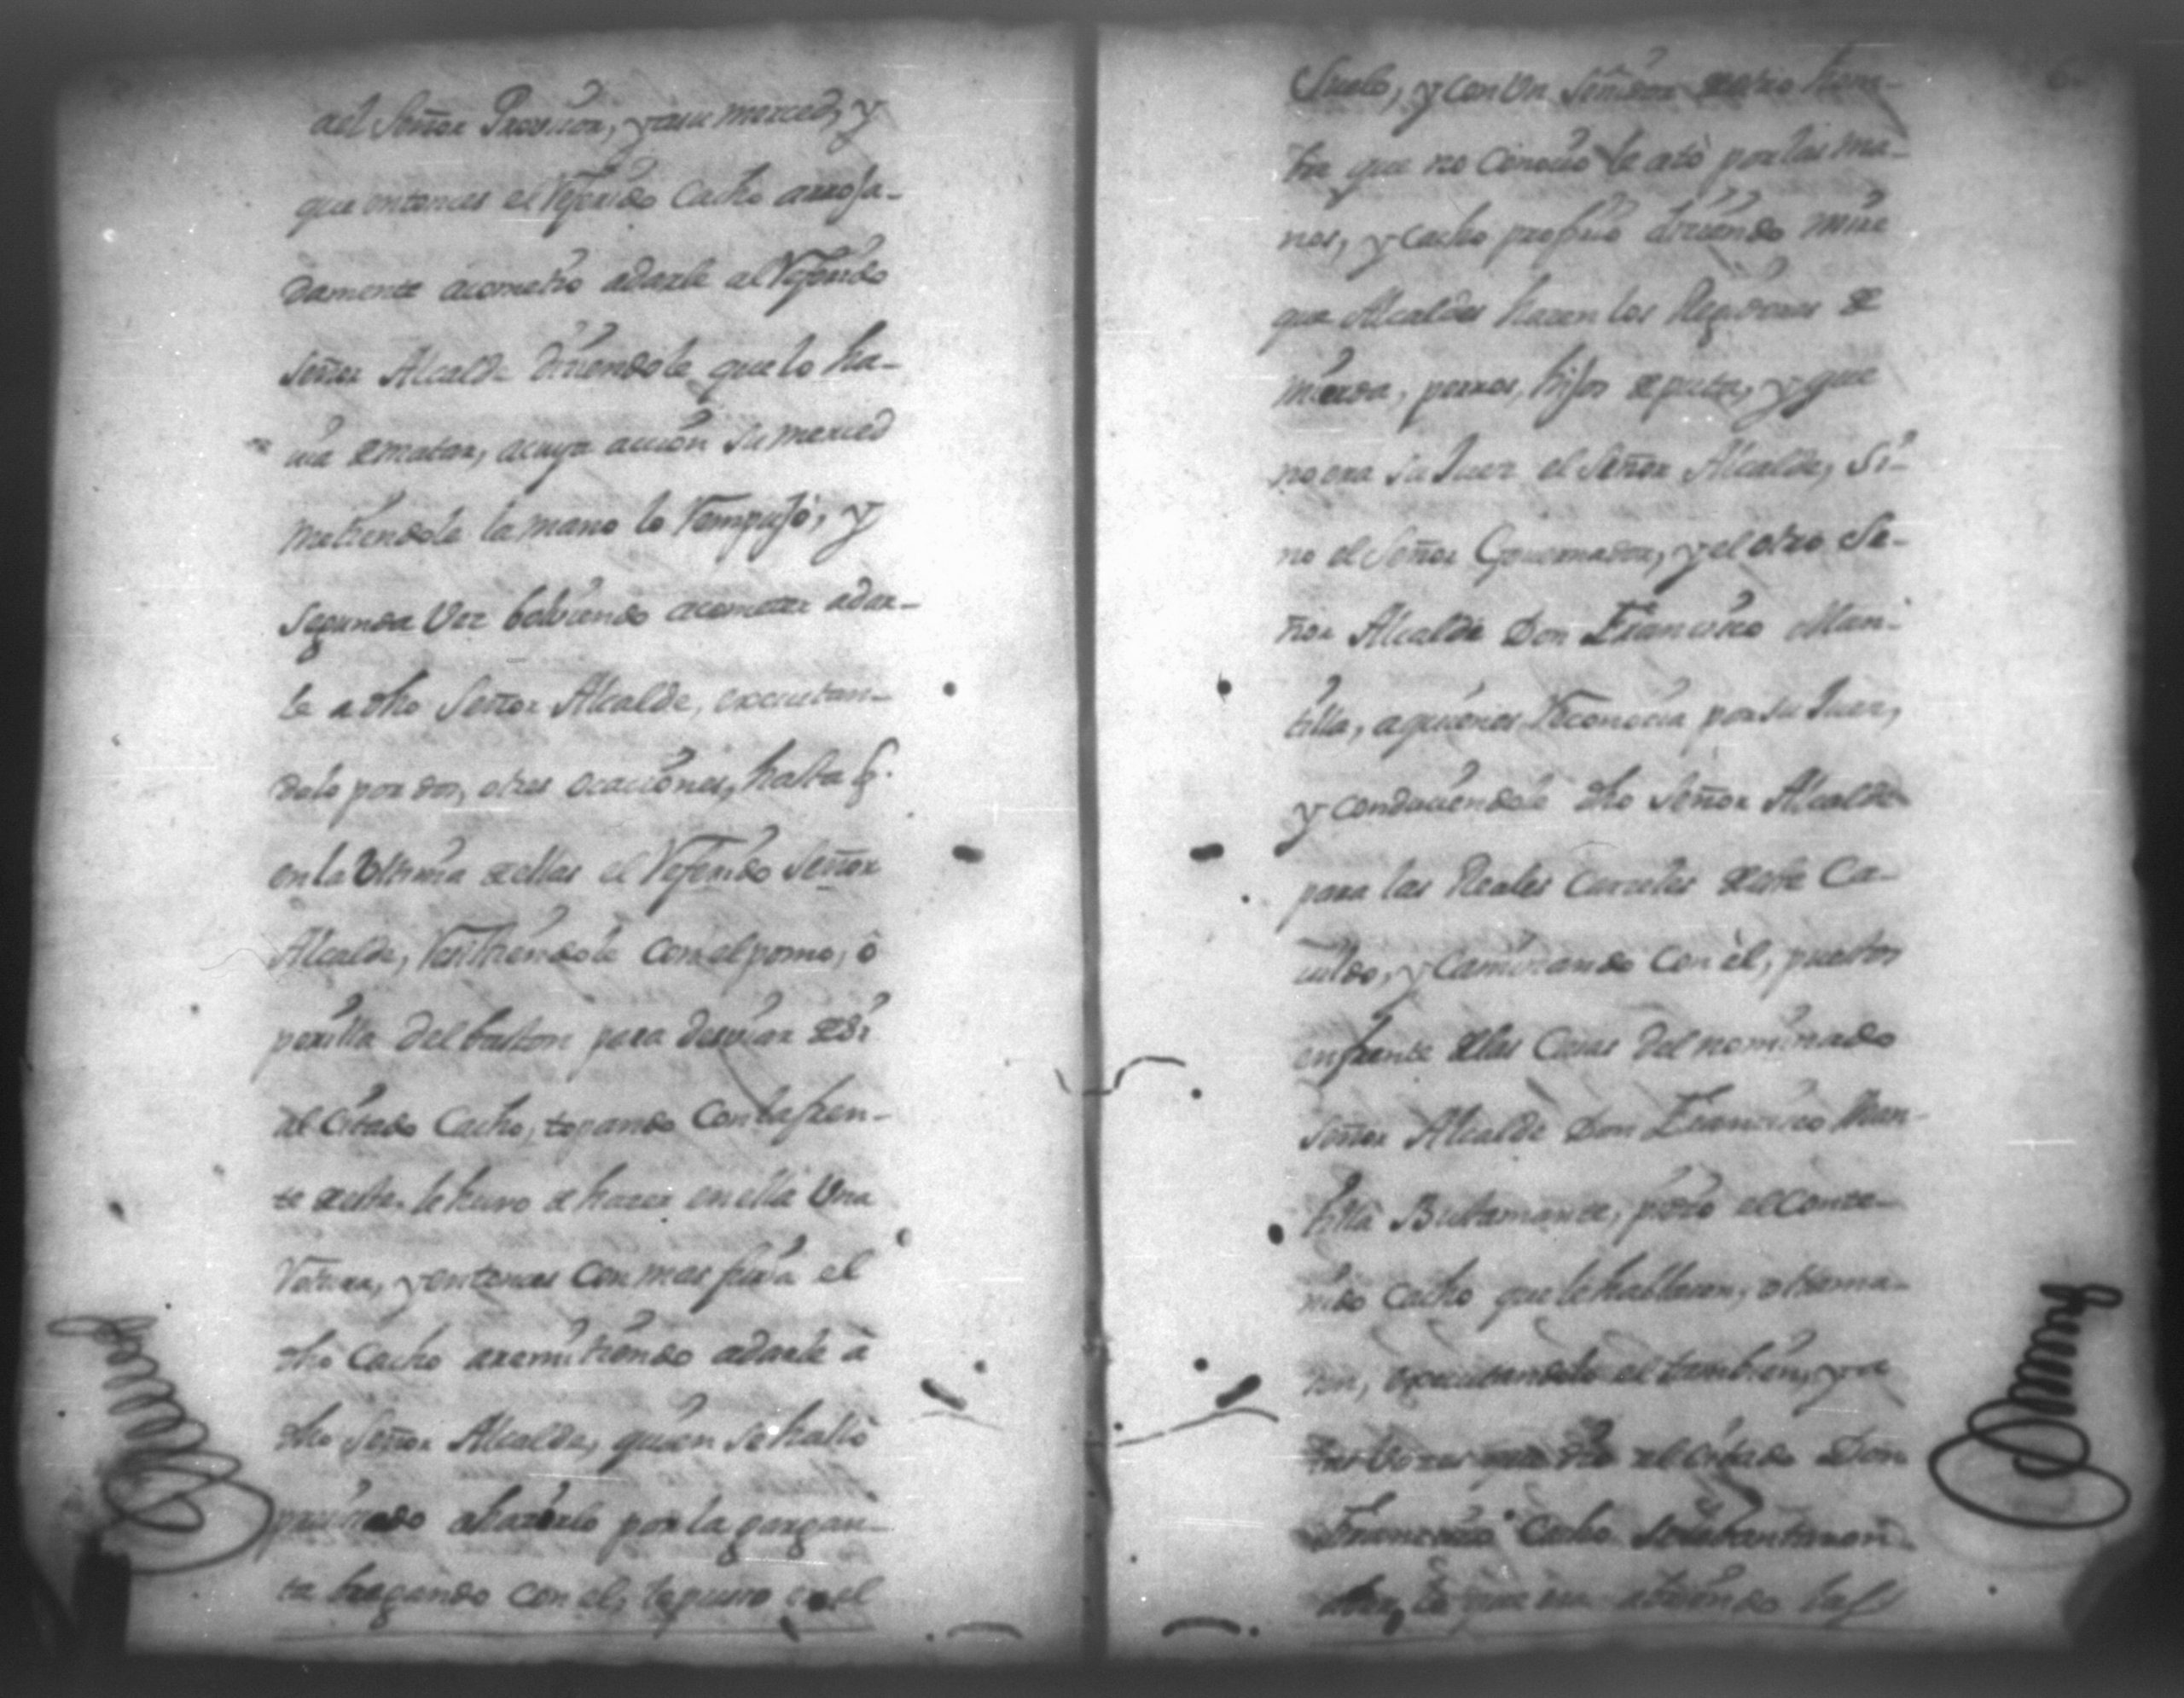 del Señor Provisor, y a su merced, y
que entonces el referido Cacho arroja-
damente acometio a darle al referido
señor Alcalde diciendole que lo ha-
via de matar, a cuya accion su merced
metiendole la mano lo rempujò, y
segunda vez bolviendo a cometer a dar-
le a dho Señor Alcalde, executan-
dolo por dos, o tres ocaciones, hasta q.
en la Ultima de ellas el referido Señor
Alcalde, resistiendole con el pomo, ô
perilla del baston para desviar de si
al citado Cacho, topando con la fren-
te de este, le huvo de hacer en ella Una
rotura, y entonces con mas furia el
dho Cacho arremitiendo a darle à
dho Señor Alcalde, quien se hallò
precisado a hacerlo por la gargan-
ta bregando con el, le puso en el
Suelo, y con Un señidor de otro hom-
bre que no conocio le atò por las ma-
nos, y Cacho profirio diciendo mire
que Alcaldes hacen los Regidores de
mierda, perros, hijos de puta, y que
no era su Juez el Señor Alcalde, Si-
no el Señor Governador, y el otro Se-
ñor Alcalde Don Francisco Man-
tilla, a quienes reconocia por su Juez,
y conduciendole dho Señor Alcalde
para las Reales Carceles de este Ca-
vildo, y caminando con èl, puestos
enfrente de las Casas del nominado
Señor Alcalde Don Francisco Man-
tilla Bustamante, pidio el conte-
nido Cacho que le hablasen, o llama-
sen, executandolo el tambien, y a
las voces que dio el citado Don
Francisco Cacho se levantaron
abriendo las